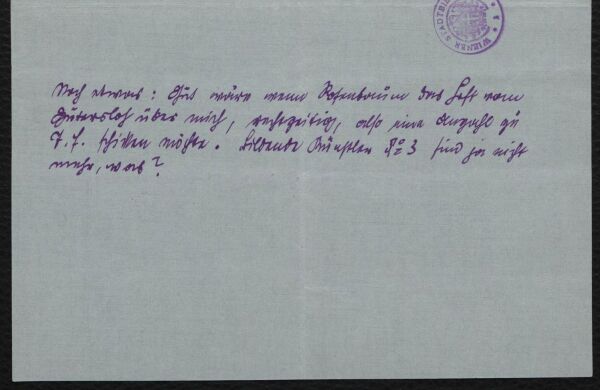 WIENER STADTBI
Noch etwas: Gut wäre wenn Rosenbaum das Heft vom
Gütersloh über mich, rechtzeitig, also eine Anzahl zu
schicken möchte. Bildende Künstler No 3 sind ja nicht
mehr, was?